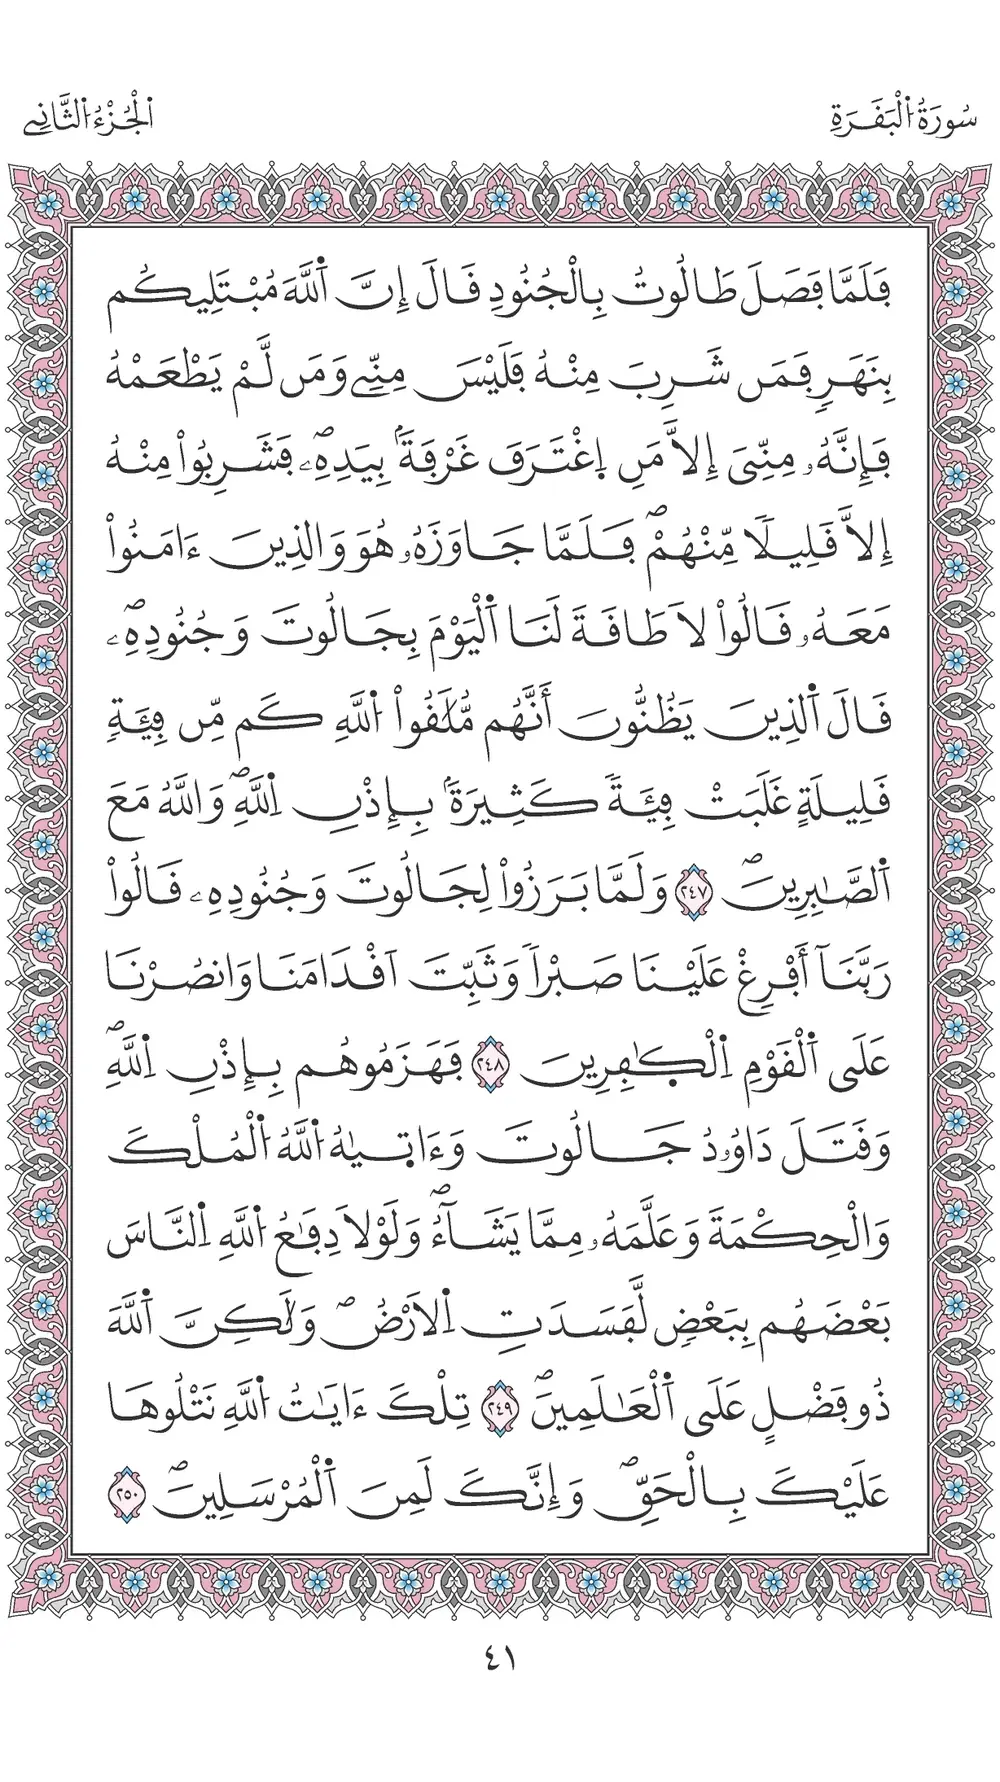 سُورَةُ اُ۬لْبَقَرَةِ
اُ۬لْجُزْءُ اُ۬لثَّانِے
فَلَمَّا فَصَلَ طَالُوتُ بِالْجُنُودِ قَالَ إِنَّ اَ۬للَّهَ مُبْتَلِيكُم
بِنَهَرٖ فَمَن شَرِبَ مِنْهُ فَلَيْسَ مِنِّے وَمَن لَّمْ يَطْعَمْهُ
فَإِنَّهُۥ مِنِّيَ إِلَّا مَنِ اِ۪غْتَرَفَ غَرْفَةَۢ بِيَدِهِۦۖ فَشَرِبُواْ مِنْهُ
إِلَّا قَلِيلٗا مِّنْهُمْۖ فَلَمَّا جَاوَزَهُۥ هُوَ وَالذِينَ ءَامَنُواْ
مَعَهُۥ قَالُواْ لَا طَاقَةَ لَنَا اَ۬لْيَوْمَ بِجَالُوتَ وَجُنُودِهِۦۖ
قَالَ اَ۬لذِينَ يَظُنُّونَ أَنَّهُم مُّلَٰقُواْ اُ۬للَّهِ كَم مِّن فِئَةٖ
قَلِيلَةٍ غَلَبَتْ فِئَةٗ كَثِيرَةَۢ بِإِذْنِ اِ۬للَّهِۖ وَاللَّهُ مَعَ
اَ۬لصَّٰبِرِينَۖ ٢٤٧ وَلَمَّا بَرَزُواْ لِجَالُوتَ وَجُنُودِهِۦ قَالُواْ
رَبَّنَآ أَفْرِغْ عَلَيْنَا صَبْراٗ وَثَبِّتَ اَقْدَامَنَا وَانصُرْنَا
عَلَي اَ۬لْقَوْمِ اِ۬لْكٰ۪فِرِينَ ٢٤٨ فَهَزَمُوهُم بِإِذْنِ اِ۬للَّهِۖ
وَقَتَلَ دَاوُۥدُ جَالُوتَ وَءَات۪يٰهُ اُ۬للَّهُ اُ۬لْمُلْكَ
وَالْحِكْمَةَ وَعَلَّمَهُۥ مِمَّا يَشَآءُۖ وَلَوْلَا دِفَٰعُ اُ۬للَّهِ اِ۬لنَّاسَ
بَعْضَهُم بِبَعْضٖ لَّفَسَدَتِ اِ۬لَارْضُۖ وَلَٰكِنَّ اَ۬للَّهَ
ذُو فَضْلٍ عَلَي اَ۬لْعَٰلَمِينَۖ ٢٤٩ تِلْكَ ءَايَٰتُ اُ۬للَّهِ نَتْلُوهَا
عَلَيْكَ بِالْحَقِّۖ وَإِنَّكَ لَمِنَ اَ۬لْمُرْسَلِينَۖ ٢٥٠
٤١